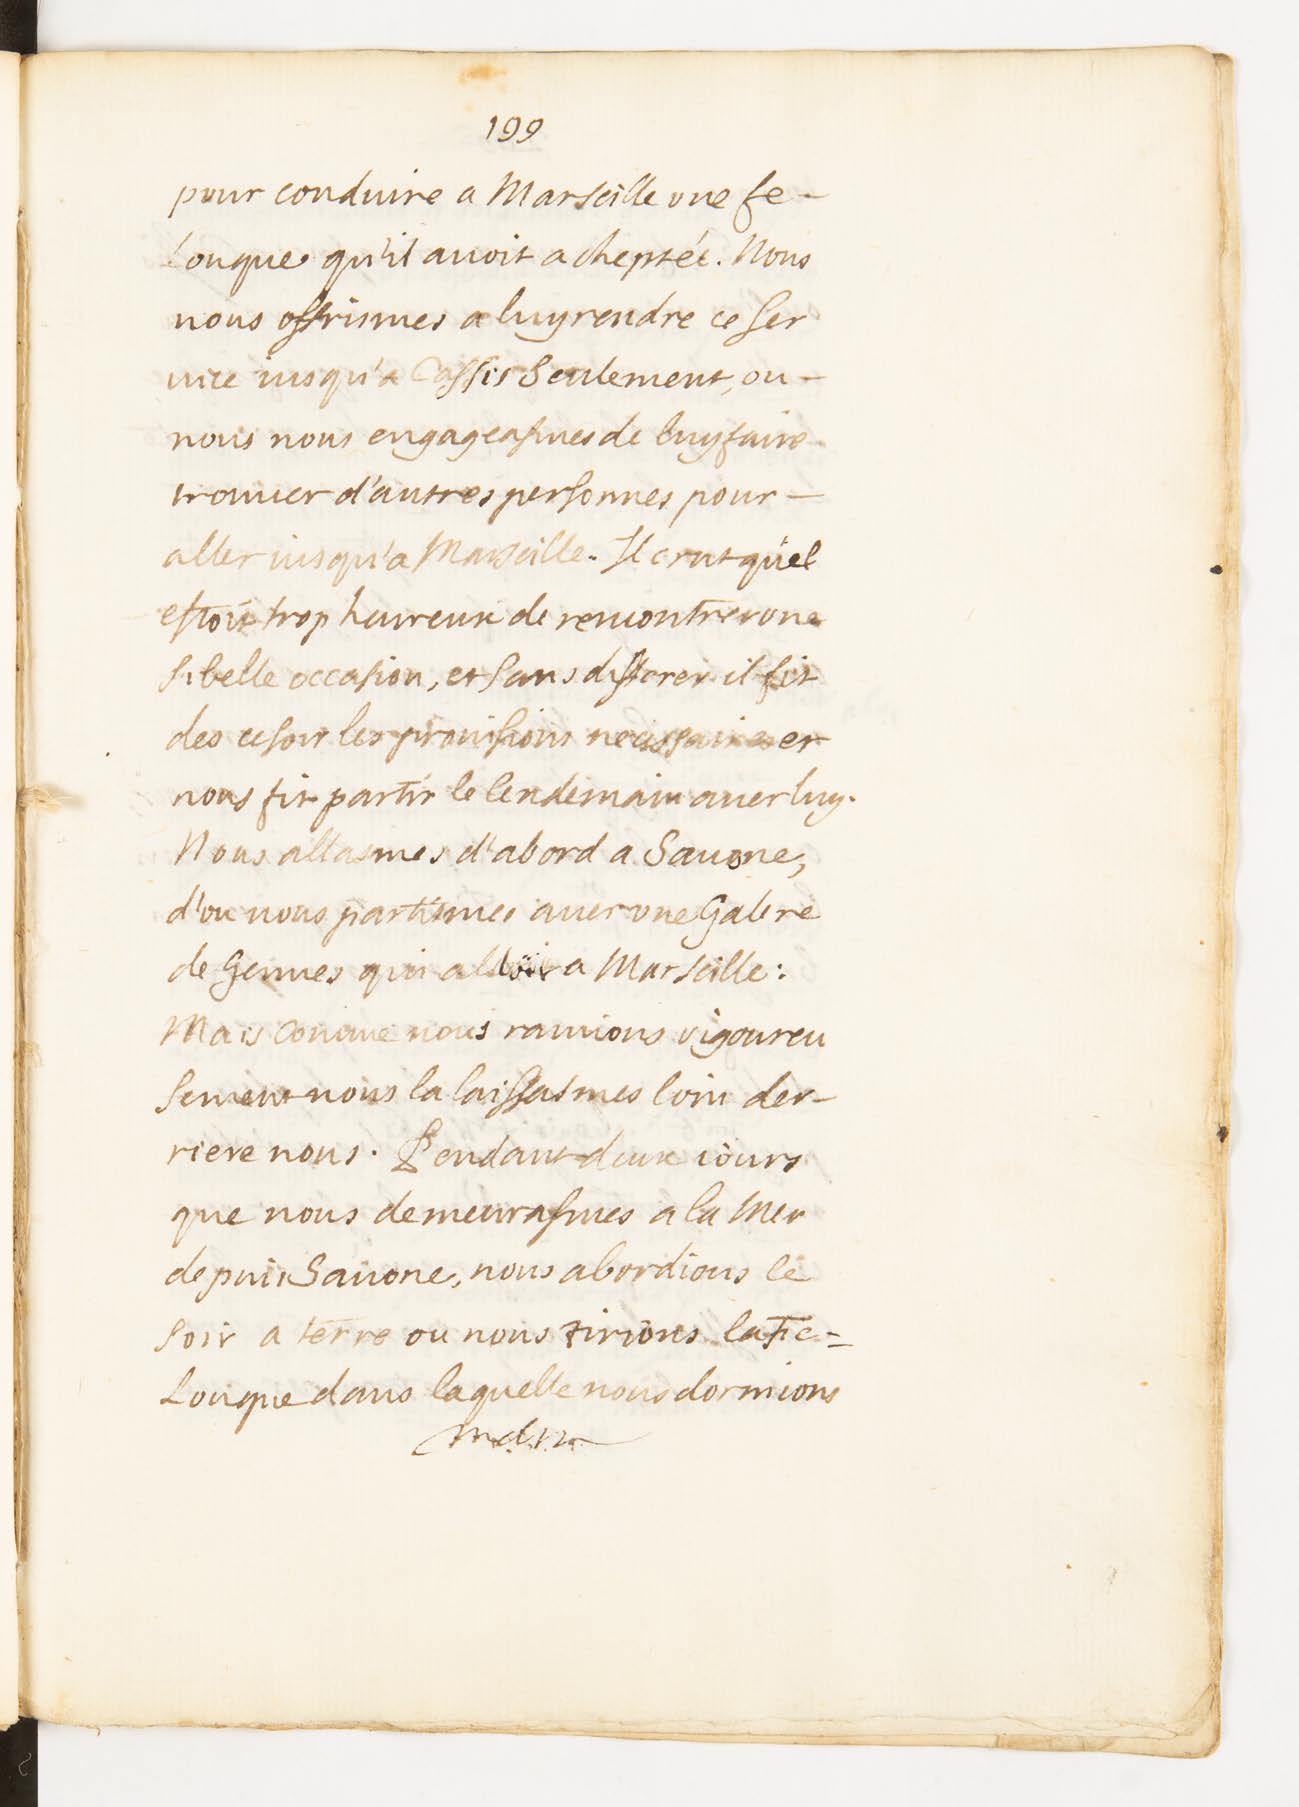 199
pour conduire a Marseille vne fe-
louque qu'il auoit acheptée. Nous
nous offrismes a luy rendre ce ser
uice iusqu'a Cassis seulement, ou-
nous nous engageasmes de luy faire
trouuer d'autres personnes pour-
aller iusqu'a Marseille. Il crut qu'il
estoit trop heureux de rencontrer vne
si belle occasion, et sans differer il fit
des ce soir les prouisions necessaires et
nous fit partir le lendemain auec luy.
Nous allasmes d'abord a Sauone,
d'ou nous partismes auec vne Galere
de Gennes qui alloit a Marseille:
Mais comme nous ramions vigoureu
sement nous la laissasmes loin der-
riere nous. Pendant deux iours
que nous demeurasmes a la Mer
depuis Sauone, nous abordions le
soir a terre ou nous tirions la fe=
louque dans laquelle nous dormions